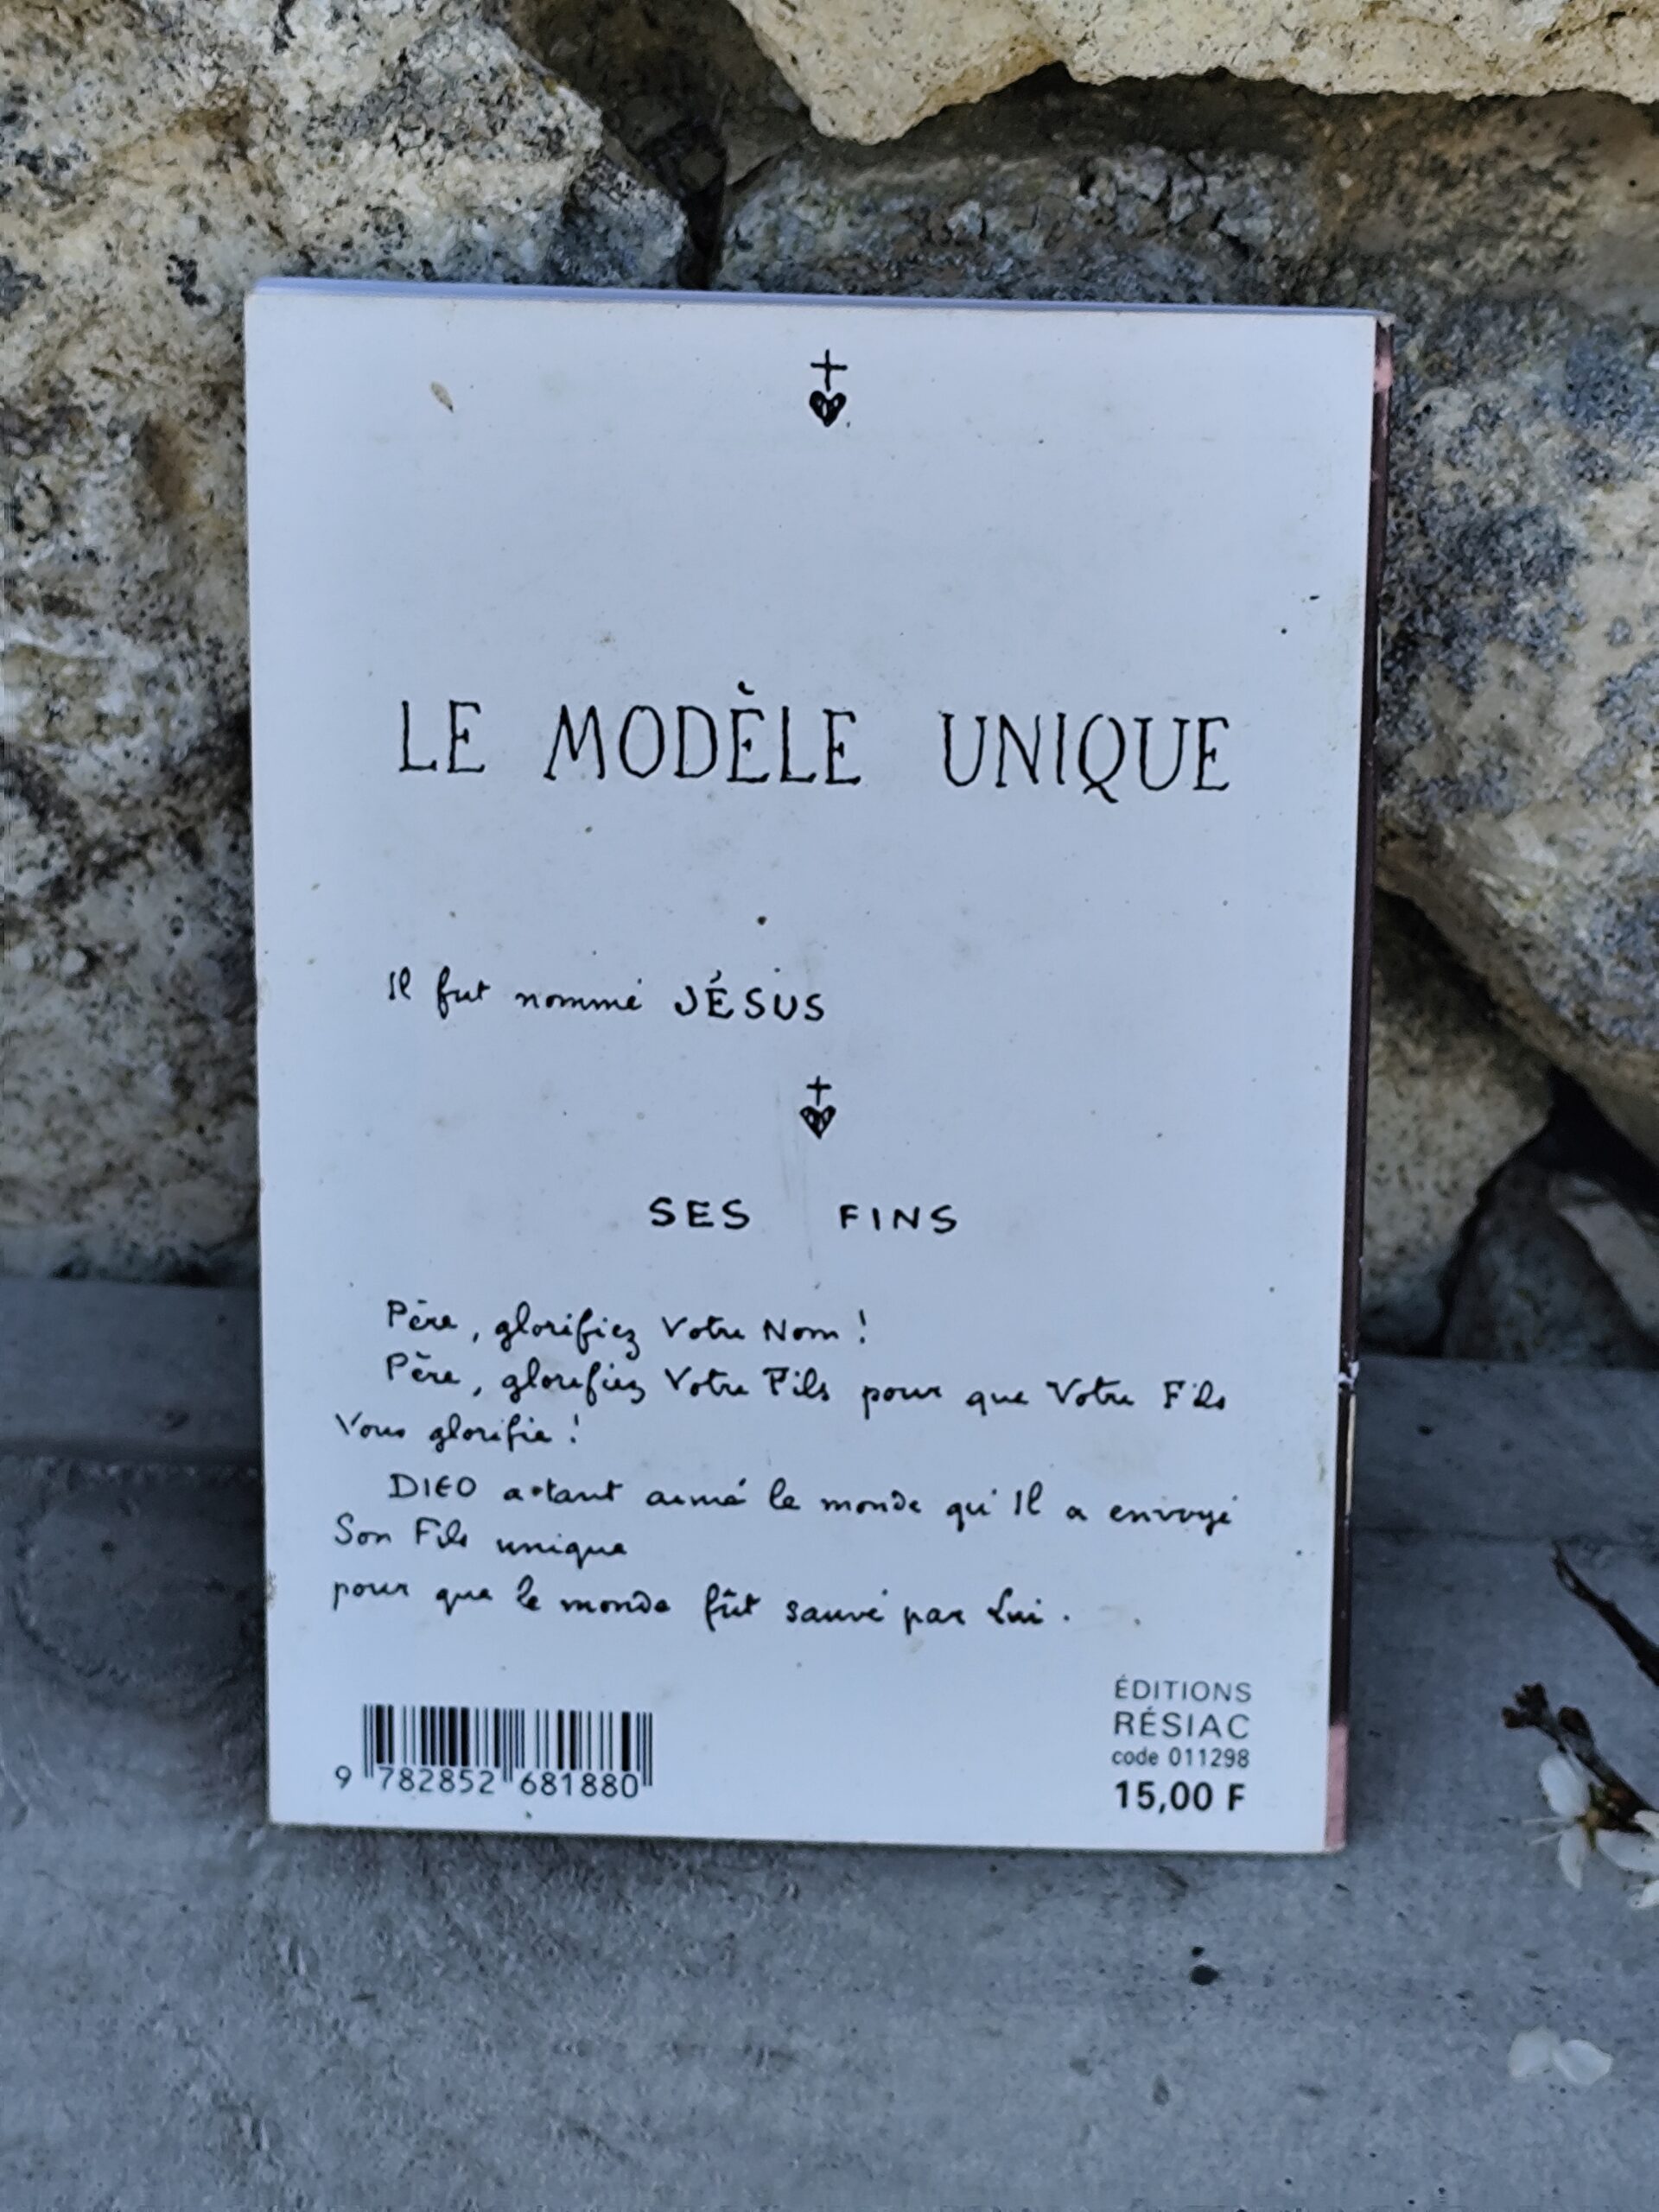 LE MODÈLE UNIQUE
Il fut nommé JÉSUS
SES FINS
Père, glorifiez Votre Nom !
Père, glorifiez Votre Fils pour que Votre Fils
Vous glorifie !
DIEU a tant aimé le monde qu'Il a envoyé
Son Fils unique
pour que le monde fût sauvé par Lui.
ÉDITIONS
RÉSIAC
code 011298
15,00 F
9 782852 681880